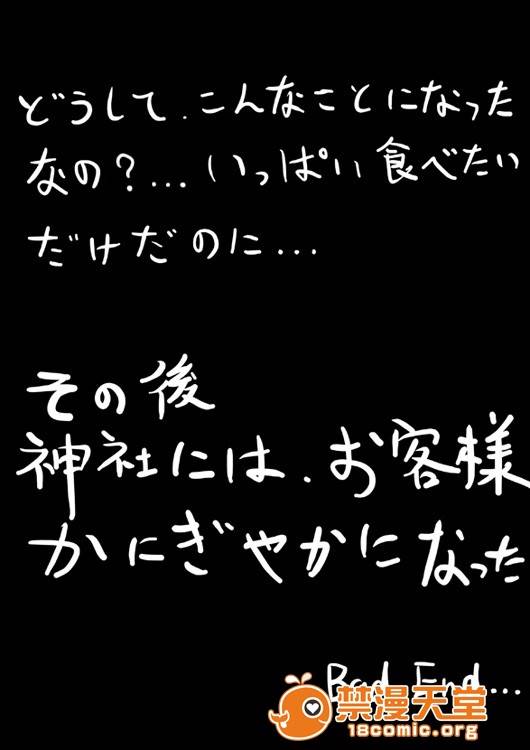 どうして、こんなことになった
なの？...いっぱい食べたい
だけだのに...
その後
神社には、お客様
かにぎやかになった
Bad End...
禁漫天堂
18comic.org